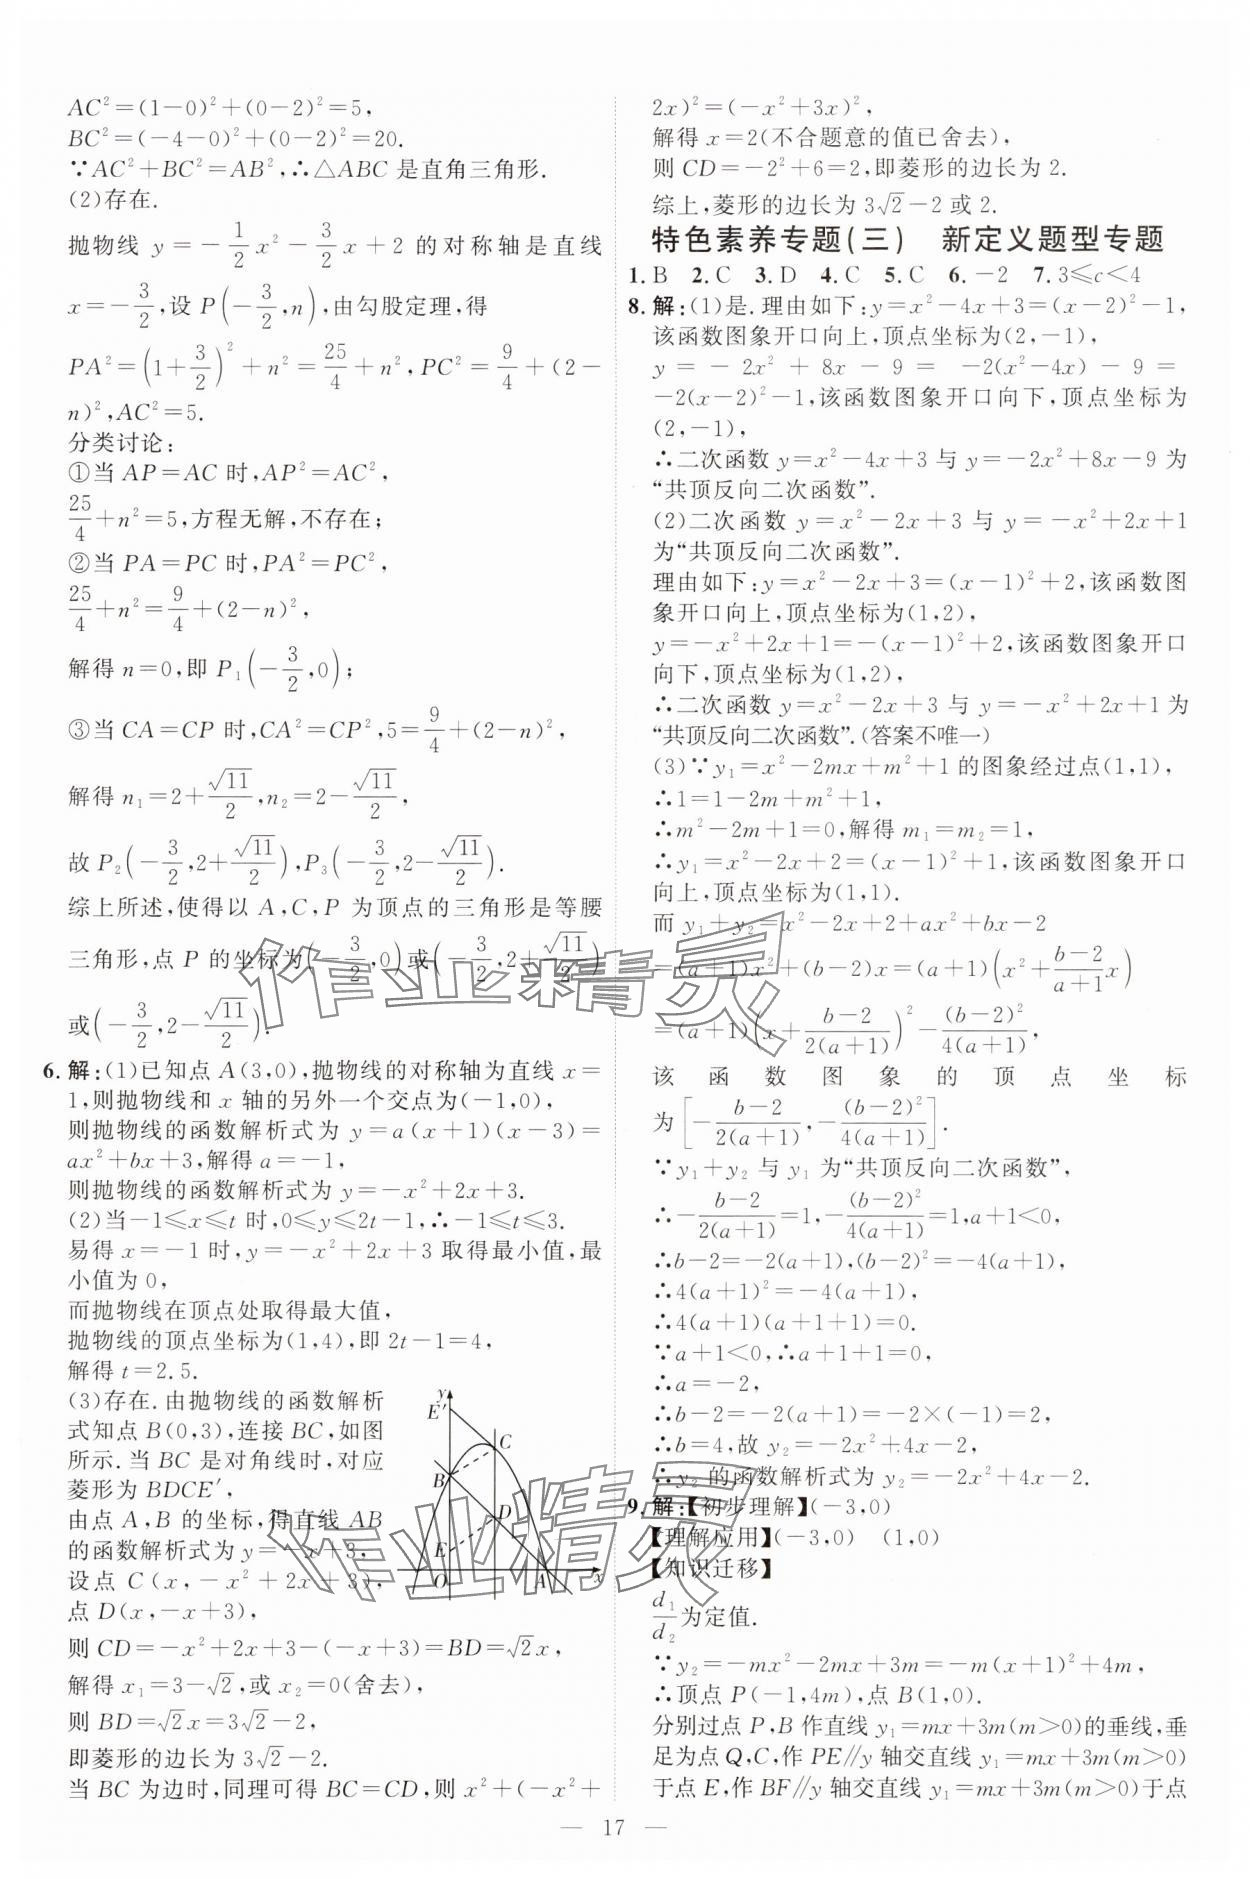 AC²=(1-0)²+(0-2)²=5,
BC²=(-4-0)²+(0-2)²=20.
∵AC²+BC²=AB²,∴△ABC 是直角三角形.
(2)存在.
抛物线 y=-1/2x²-3/2x+2 的对称轴是直线
x=-3/2,设 P(-3/2,n),由勾股定理,得
PA²=(1+3/2)²+n²=25/4+n²,PC²=9/4+(2-
n)²,AC²=5.
分类讨论:
①当 AP=AC 时,AP²=AC²,
25/4+n²=5,方程无解,不存在;
②当 PA=PC 时,PA²=PC²,
25/4+n²=9/4+(2-n)²,
解得 n=0,即 P₁(-3/2,0);
③当 CA=CP 时,CA²=CP²,5=9/4+(2-n)²,
解得 n₁=2+√11/2,n₂=2-√11/2,
故 P₂(-3/2,2+√11/2),P₃(-3/2,2-√11/2).
综上所述,使得以 A,C,P 为顶点的三角形是等腰
三角形,点 P 的坐标为(-3/2,0)或(-3/2,2+√11/2)
或(-3/2,2-√11/2).
6.解:(1)已知点 A(3,0),抛物线的对称轴为直线 x=
1,则抛物线和 x 轴的另外一个交点为(-1,0),
则抛物线的函数解析式为 y=a(x+1)(x-3)=
ax²+bx+3,解得 a=-1,
则抛物线的函数解析式为 y=-x²+2x+3.
(2)当-1≤x≤t 时,0≤y≤2t-1,∴-1≤t≤3.
易得 x=-1 时,y=-x²+2x+3 取得最小值,最
小值为 0,
而抛物线在顶点处取得最大值,
抛物线的顶点坐标为(1,4),即 2t-1=4,
解得 t=2.5.
(3)存在.由抛物线的函数解析
式知点 B(0,3),连接 BC,如图
所示.当 BC 是对角线时,对应
菱形为 BDCE′,
由点 A,B 的坐标,得直线 AB
的函数解析式为 y=-x+3,
设点 C(x,-x²+2x+3),
点 D(x,-x+3),
y
E′
C
B
D
E
O
A
x
则 CD=-x²+2x+3-(-x+3)=BD=√2x,
解得 x₁=3-√2,或 x₂=0(舍去),
则 BD=√2x=3√2-2,
即菱形的边长为 3√2-2.
当 BC 为边时,同理可得 BC=CD,则 x²+(-x²+
2x)²=(-x²+3x)²,
解得 x=2(不合题意的值已舍去),
则 CD=-2²+6=2,即菱形的边长为 2.
综上,菱形的边长为 3√2-2 或 2.
特色素养专题(三) 新定义题型专题
1.B 2.C 3.D 4.C 5.C 6.-2 7.3≤c<4
8.解:(1)是.理由如下:y=x²-4x+3=(x-2)²-1,
该函数图象开口向上,顶点坐标为(2,-1),
y=-2x²+8x-9=-2(x²-4x)-9=
-2(x-2)²-1,该函数图象开口向下,顶点坐标为
(2,-1),
∴二次函数 y=x²-4x+3 与 y=-2x²+8x-9 为
“共顶反向二次函数”.
(2)二次函数 y=x²-2x+3 与 y=-x²+2x+1
为“共顶反向二次函数”.
理由如下:y=x²-2x+3=(x-1)²+2,该函数图
象开口向上,顶点坐标为(1,2),
y=-x²+2x+1=-(x-1)²+2,该函数图象开口
向下,顶点坐标为(1,2),
∴二次函数 y=x²-2x+3 与 y=-x²+2x+1 为
“共顶反向二次函数”.(答案不唯一)
(3)∵y₁=x²-2mx+m²+1 的图象经过点(1,1),
∴1=1-2m+m²+1,
∴m²-2m+1=0,解得 m₁=m₂=1,
∴y₁=x²-2x+2=(x-1)²+1,该函数图象开口
向上,顶点坐标为(1,1).
而 y₁+y₂=x²-2x+2+ax²+bx-2
=(a+1)x²+(b-2)x=(a+1)(x²+(b-2)/(a+1)x)
=(a+1)(x+(b-2)/2(a+1))²-(b-2)²/4(a+1),
该函数图象的顶点坐标
为[-(b-2)/2(a+1),-(b-2)²/4(a+1)].
∵y₁+y₂ 与 y₁ 为“共顶反向二次函数”,
∴-(b-2)/2(a+1)=1,-(b-2)²/4(a+1)=1,a+1<0,
∴b-2=-2(a+1),(b-2)²=-4(a+1),
∴4(a+1)²=-4(a+1),
∴4(a+1)(a+1+1)=0.
∵a+1<0,∴a+1+1=0,
∴a=-2,
∴b-2=-2(a+1)=-2×(-1)=2,
∴b=4,故 y₂=-2x²+4x-2,
∴y₂ 的函数解析式为 y₂=-2x²+4x-2.
9.解:【初步理解】(-3,0)
【理解应用】(-3,0) (1,0)
【知识迁移】
d₁/d₂为定值.
∵y₂=-mx²-2mx+3m=-m(x+1)²+4m,
∴顶点 P(-1,4m),点 B(1,0).
分别过点 P,B 作直线 y₁=mx+3m(m>0)的垂线,垂
足为点 Q,C,作 PE∥y 轴交直线 y₁=mx+3m(m>0)
于点 E,作 BF∥y 轴交直线 y₁=mx+3m(m>0)于点
— 17 —
作业精灵
作业精灵